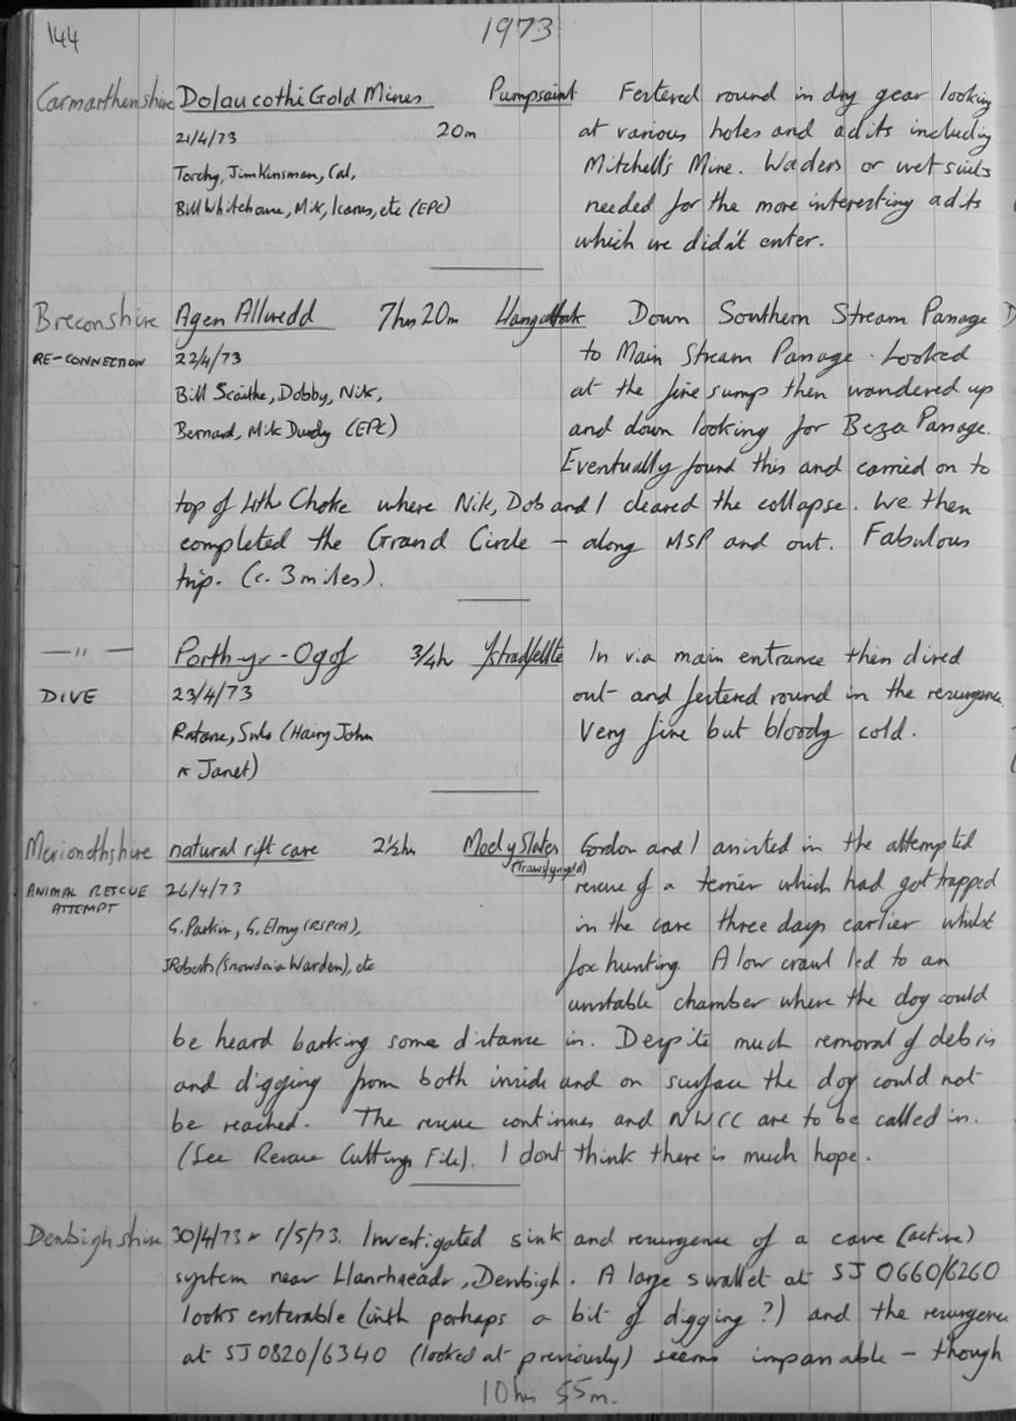 144
1973
Carmarthenshire Dolaucothi Gold Mines Pumpsaint Festered round in dry gear looking
21/4/73 20m at various holes and adits including
Torchy, Jim Kinsman, Cal, Mitchell's Mine. Waders or wet suits
Bill Whitehouse, Mik, Icarus, etc (EPC) needed for the more interesting adits
which we didn't enter.
Breconshire Agen Allwedd 7hrs 20m Llangattock Down Southern Stream Passage
RE-CONNECTION 22/4/73 to Main Stream Passage. Looked
Bill Scaithe, Dobby, Nik, at the fine sump then wandered up
Bernard, Mik Dundy (EPC) and down looking for Beza Passage.
Eventually found this and carried on to
top of 4th Choke where Nik, Dob and I cleared the collapse. We then
completed the Grand Circle - along MSP and out. Fabulous
trip. (c. 3 miles).
—"— Porth-yr-Ogof 3/4h Ystradfellte In via main entrance then dived
DIVE 23/4/73 out and festered round in the resurgence.
(Hairy John Very fine but bloody cold.
& Janet)
Merionethshire natural rift cave 2½hrs Moel y Slates Gordon and I assisted in the attempted
(Trawsfynydd)
ANIMAL RESCUE ATTEMPT 26/4/73 rescue of a terrier which had got trapped
G. Parkin, G. Elmy (RSPCA), in the cave three days earlier whilst
J Roberts (Snowdonia Warden), etc fox hunting. A low crawl led to an
unstable chamber where the dog could
be heard barking some distance in. Despite much removal of debris
and digging from both inside and on surface the dog could not
be reached. The rescue continues and NWCC are to be called in.
(See Rescue Cuttings File). I dont think there is much hope.
Denbighshire 30/4/73 & 1/5/73. Investigated sink and resurgence of a cave (active)
system near Llanrhaeadr, Denbigh. A large swallet at SJ 0660/6260
looks enterable (with perhaps a bit of digging?) and the resurgence
at SJ 0820/6340 (looked at previously) seems impassable - though
10 hrs 55m.